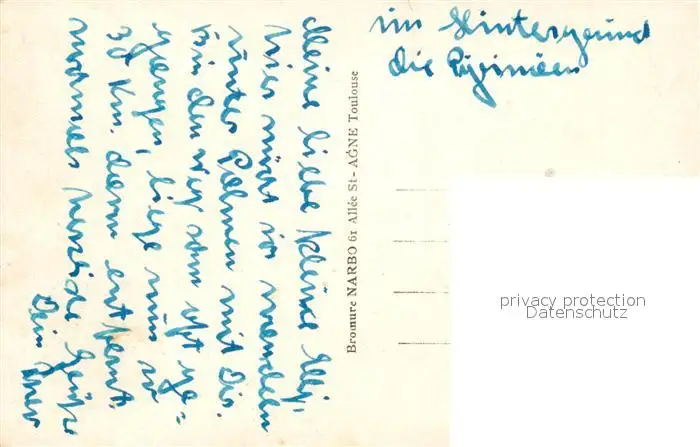 im Hintergrund
die Pyrinäen
Meine liebe kleine Elly,
hier möcht ich wandeln
unter Palmen mit Dir.
Bin den Weg schon oft ge=
gangen, liege nun so
30 Km. davon entfernt.
nochmals herzliche Grüße
Dein
Bromure NARBO 61 Allée St-AGNE Toulouse
privacy protection
Datenschutz